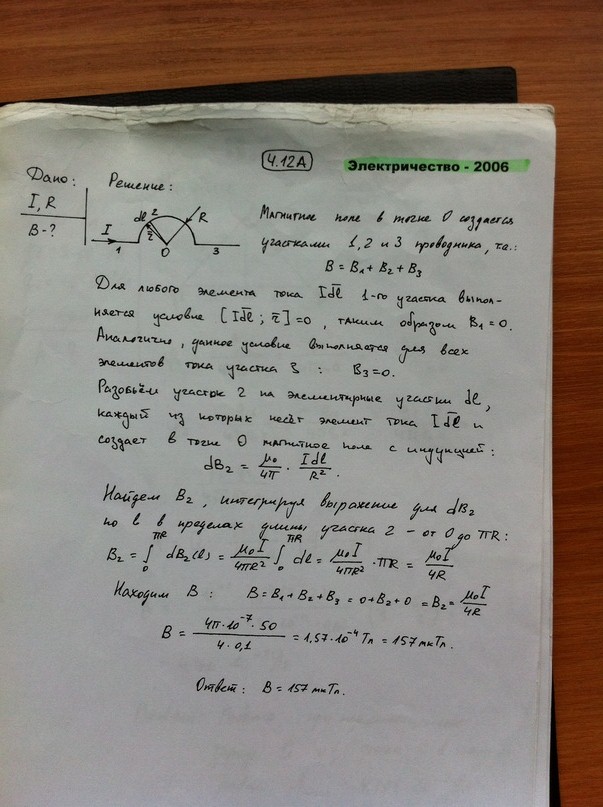 4.12А
Электричество - 2006
Дано:
I, R
B-?
Решение:
I
dl
2
R
r̄
1
O
3
Магнитное поле в точке O создаётся
участками 1, 2 и 3 проводника, т.е.:
B = B₁ + B₂ + B₃
Для любого элемента тока Idl̄ 1-го участка выпол-
няется условие [Idl̄ ; r̄] = 0, таким образом B₁ = 0.
Аналогично, данное условие выполняется для всех
элементов тока участка 3 : B₃ = 0.
Разобьём участок 2 на элементарные участки dl,
каждый из которых несёт элемент тока Idl̄ и
создает в точке O магнитное поле с индукцией:
dB₂ = μ₀/4π · Idl/R².
Найдем B₂, интегрируя выражение для dB₂
по l в пределах длины участка 2 - от 0 до πR:
B₂ = ∫₀^πR dB₂(l) = μ₀I/4πR² ∫₀^πR dl = μ₀I/4πR² · πR = μ₀I/4R
Находим B : B = B₁ + B₂ + B₃ = 0 + B₂ + 0 = B₂ = μ₀I/4R
B = 4π·10⁻⁷·50 / 4·0,1 = 1,57·10⁻⁴ Тл = 157 мкТл.
Ответ: B = 157 мкТл.